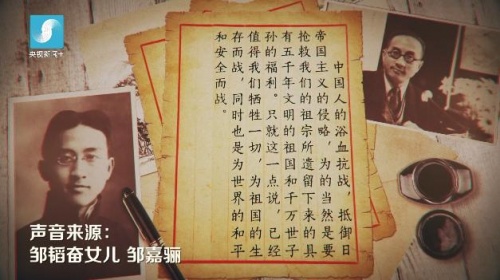 央视新闻+
中国人的浴血抗战,抵御日
帝国主义的侵略,为的当然是要
抢救我们的祖宗所遗留下来的具
有五千年文明的祖国和千万世子
孙的福利。只就这一点说,已经
值得我们牺牲一切,为祖国的生
存而战,同时也是为世界的和平
和安全而战。
声音来源:
邹韬奋女儿 邹嘉骊